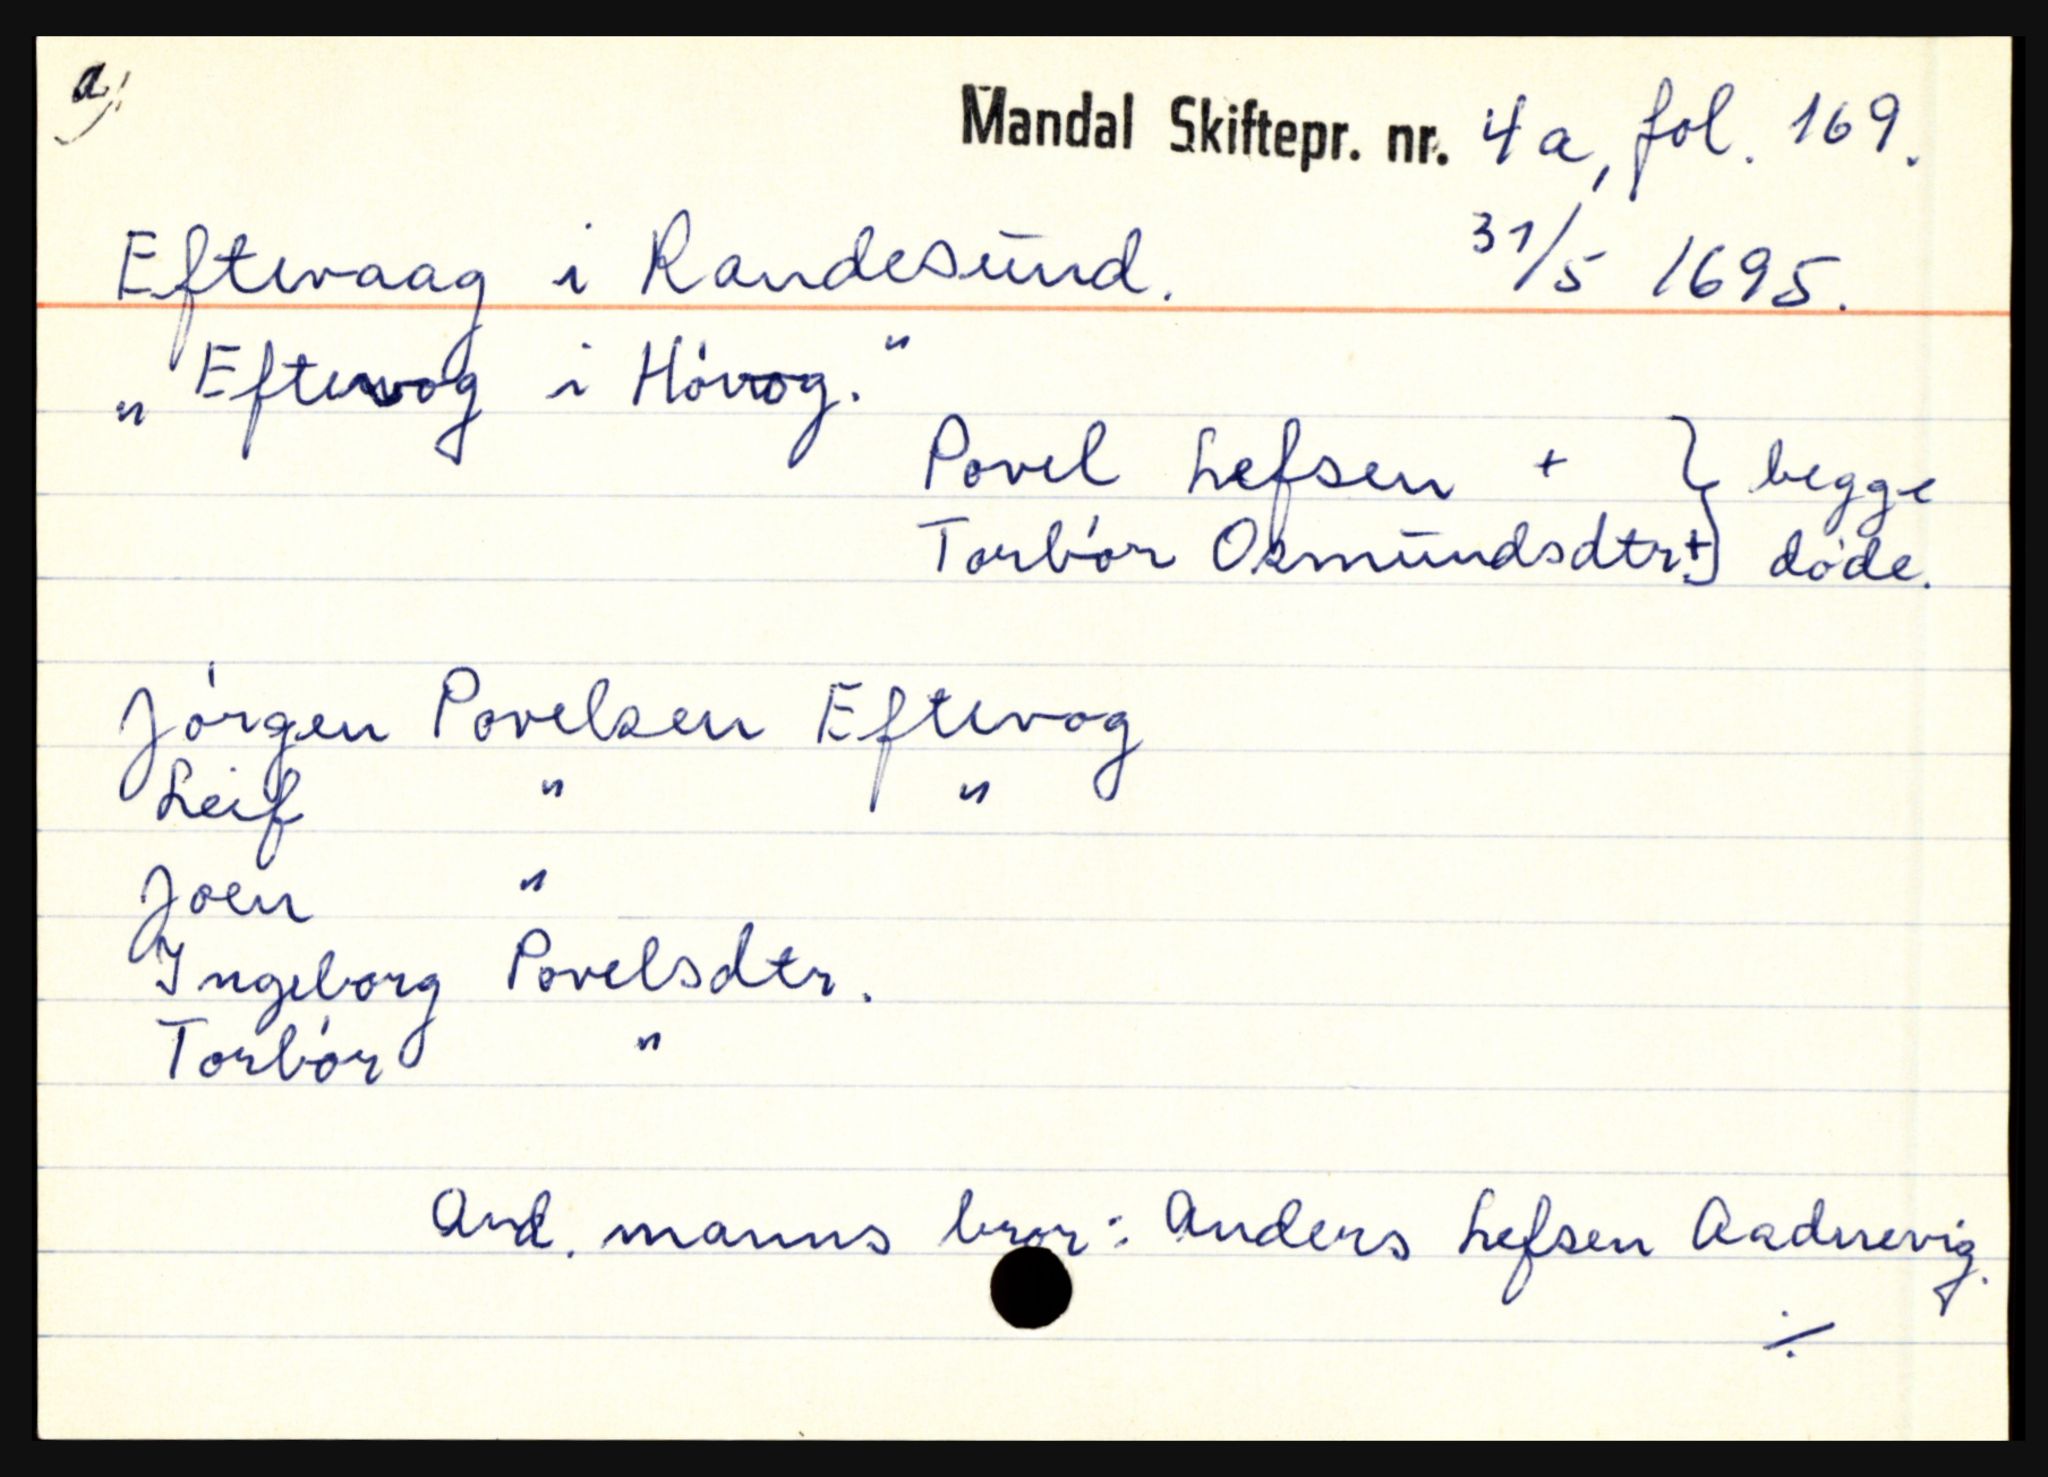 a)
Mandal Skiftepr. nr. 4a, fol. 169.
Eftevaag i Randesund. 31/5 1695.
„Eftevog i Hövog.“
Povel Lefsen + } begge
Torbör Osmundsdtr. + } döde.
Jörgen Povelsen Eftevog
Leif " "
Joen "
Ingeborg Povelsdtr.
Torbör "
Avd. manns bror: Anders Lefsen Aadnevig.